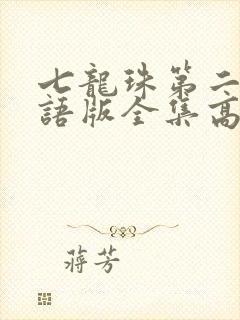 七龍珠第二
語版全集高
蔣芳